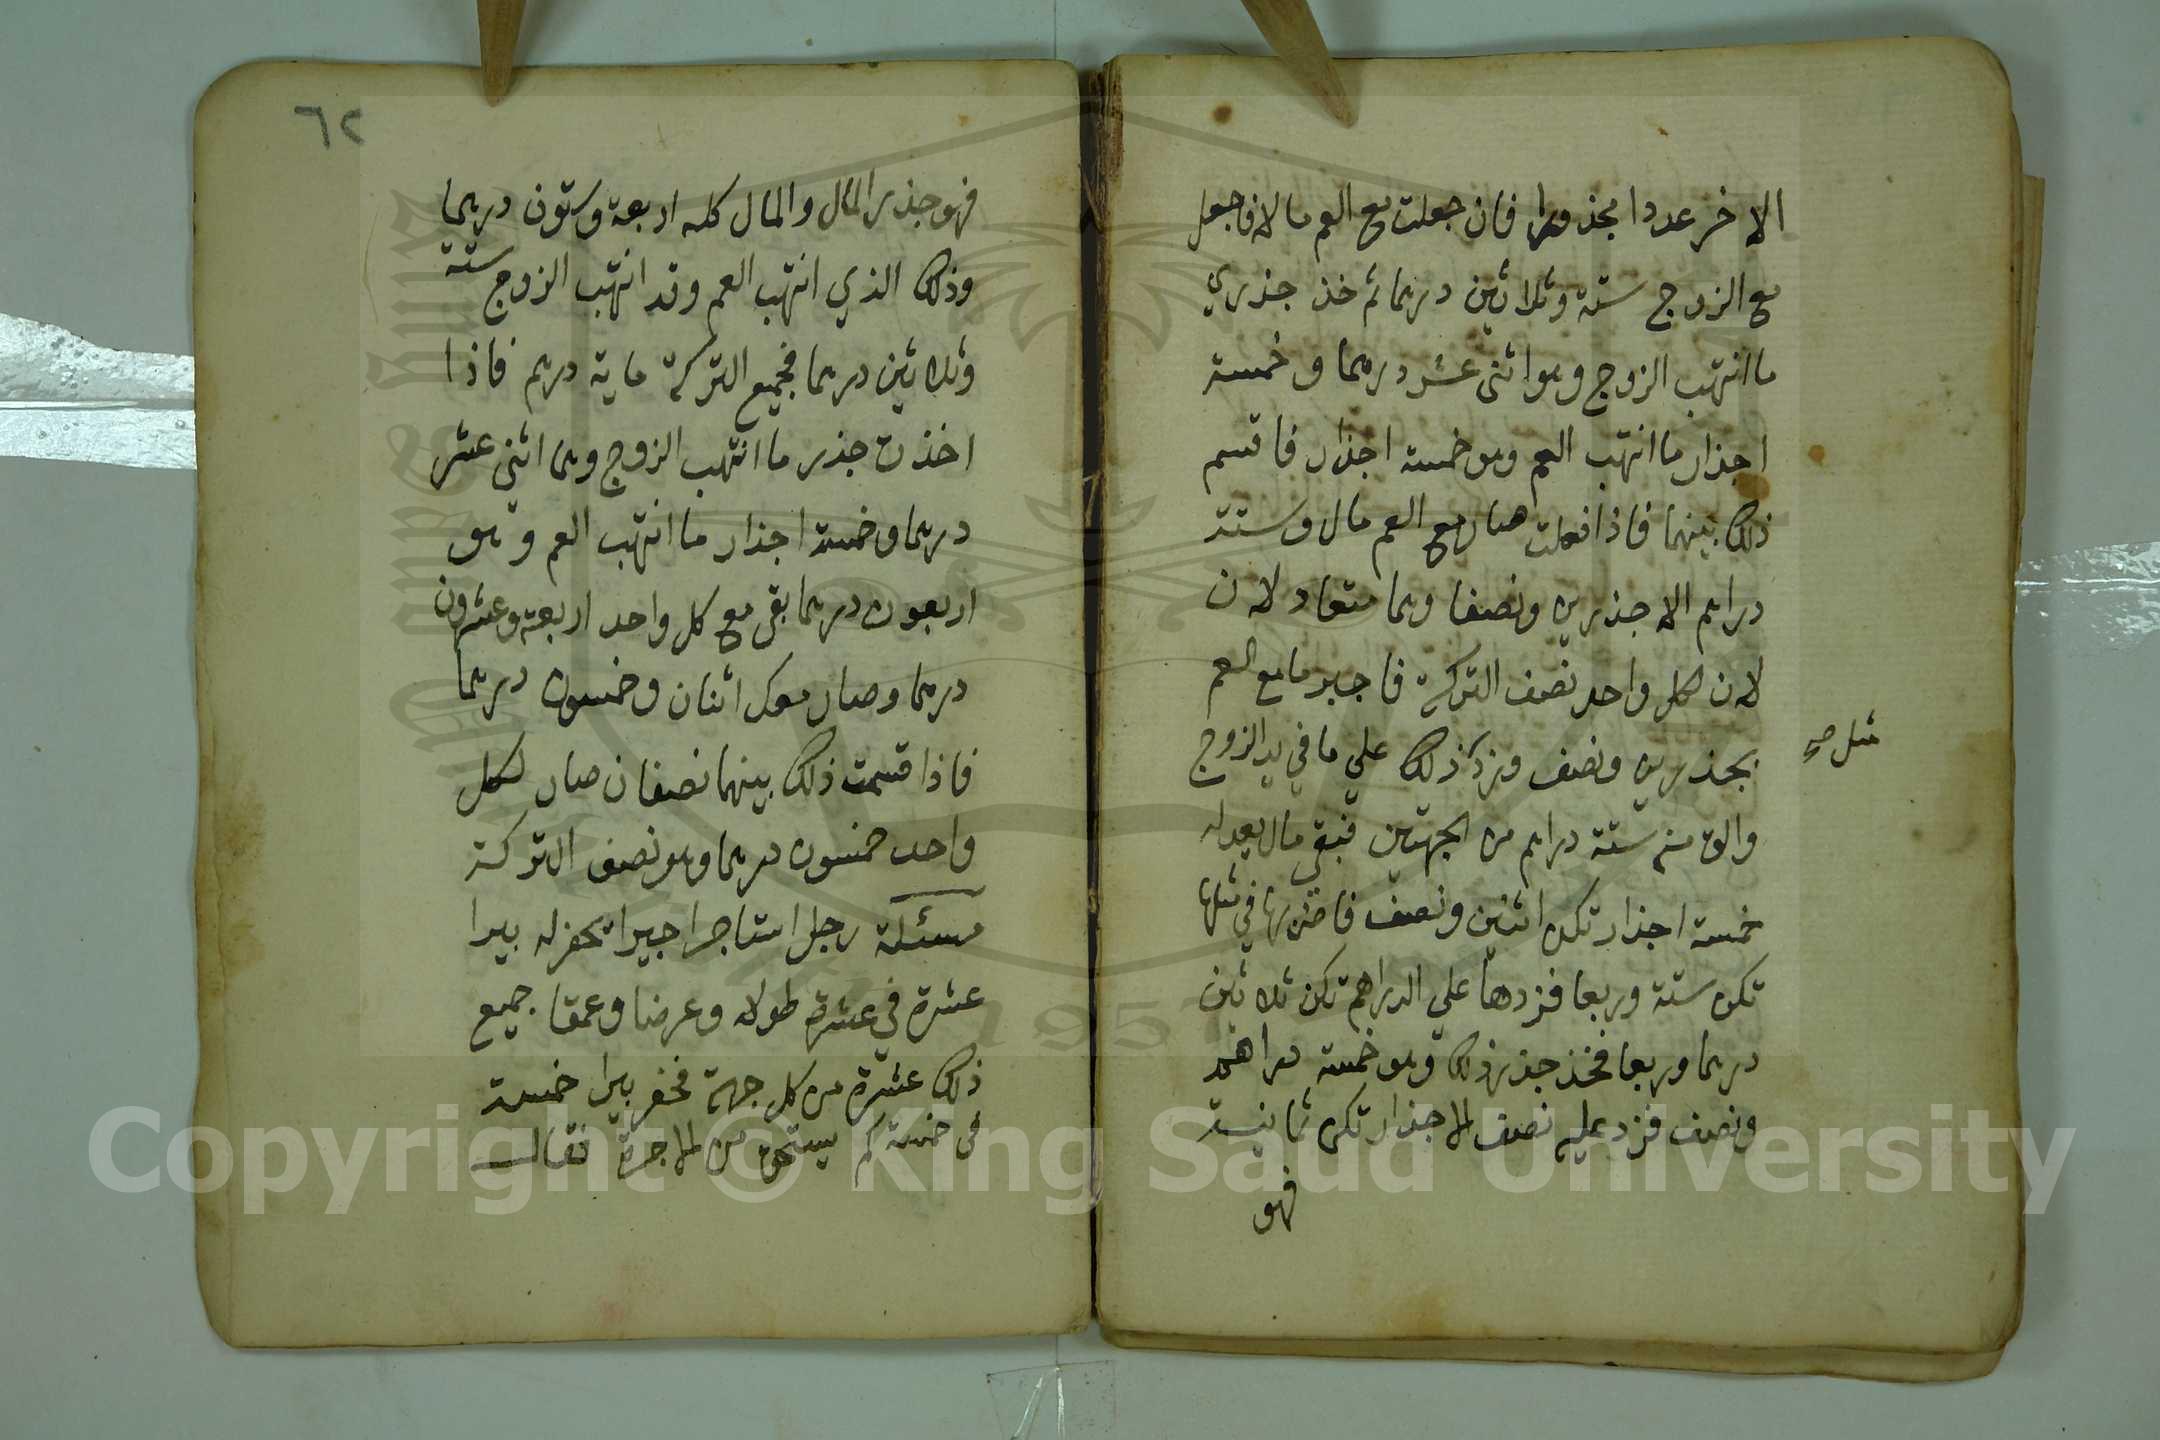 الاخر عددا مجذورا فان جعلت مع العم مالا فاجعل
مع الزوج ستة وثلاثين درهما ثم خذ جذري
ما انتهب الزوج وهو اثنى عشر درهما وخمسة
اجذار ما انتهب العم وهو خمسة اجذار فاقسم
ذلك بينهما فاذا فعلت صار مع العم مال وستة
دراهم الا جذرين ونصفا وهما متعادلان
لان لكل واحد نصف التركة فاجبر ما مع العم
بجذرين ونصف وزد ذلك علي ما في يد الزوج
مثل صح
والق منه ستة دراهم من الجهتين فيبقى مال يعدله
خمسة اجذار تكن اثنين ونصف فاضربها في مثلها
تكن ستة وربعا فزدها علي الدراهم تكن ثلاثين
درهما وربعا فخذ جذر ذلك وهو خمسة دراهم
ونصف فزد عليه نصف الاجذار تكن ثمانية
فهو
٦٢
فهو جذر المال والمال كله اربعة وستون درهما
وذلك الذي انتهب العم وقد انتهب الزوج ستة
وثلاثين درهما فجميع التركة ماية درهم فاذا
اخذت جذر ما انتهب الزوج وهما اثني عشر
درهما وخمسة اجذار ما انتهب العم وهو
اربعون درهما بقى مع كل واحد اربعة وعشرون
درهما وصار معك اثنان وخمسون درهما
فاذا قسمت ذلك بينهما نصفان صار لكل
واحد خمسون درهما وهو نصف التركة
مسئلة رجل استاجر اجيرا يحفر له بيرا
عشرة في عشرة طولا وعرضا وعمقا جميع
ذلك عشرة من كل جهة فحفر بيرا خمسة
في خمسة كم يستحق من الاجرة فقال
Copyright © King Saud University
1957